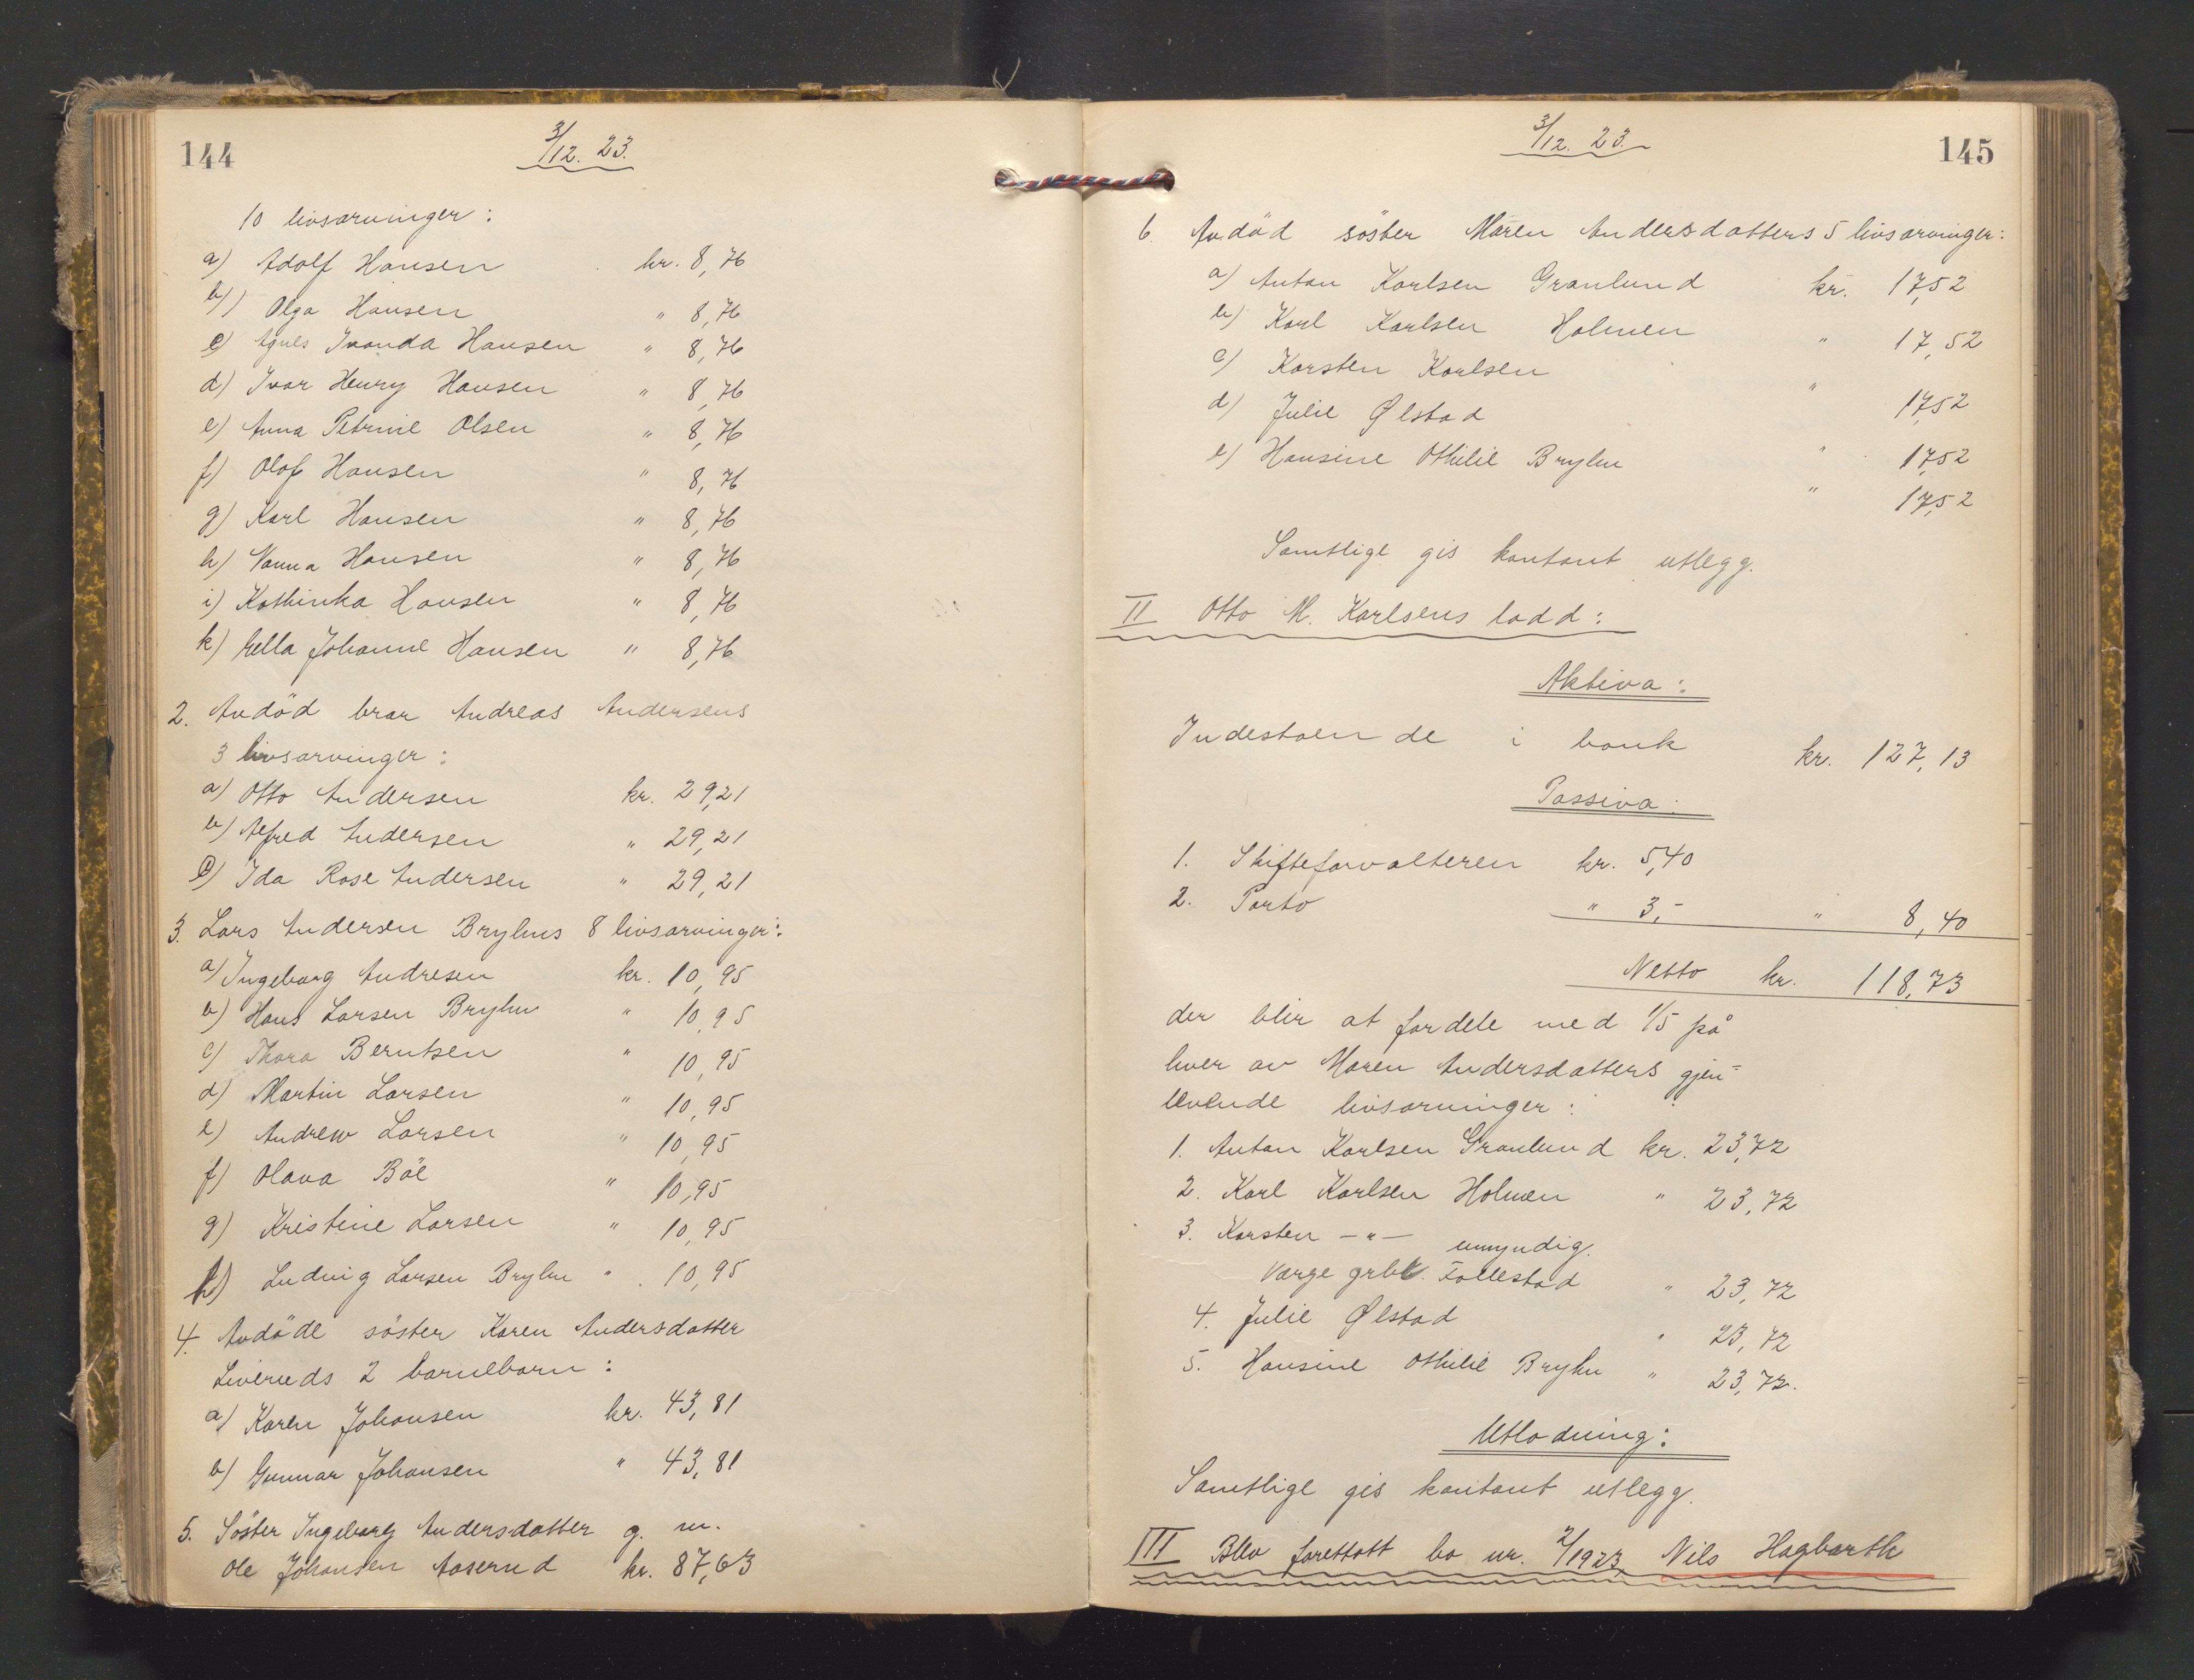 144
3/12. 23.
10 livsarvinger:
a) Adolf Hansen kr. 8,76
b) Olga Hansen " 8,76
c) Agnes Ivanda Hansen " 8,76
d) Ivar Henry Hansen " 8,76
e) Anna Petrine Olsen " 8,76
f) Olof Hansen " 8,76
g) Karl Hansen " 8,76
h) Nanna Hansen " 8,76
i) Kathinka Hansen " 8,76
k) Hella Johanne Hansen " 8,76
2. Avdöd bror Andreas Andersens
3 livsarvinger:
a) Otto Andersen kr. 29,21
b) Alfred Andersen " 29,21
c) Ida Rose Andersen " 29,21
3. Lars Andersen Bryhns 8 livsarvinger:
a) Ingeborg Andresen kr. 10,95
b) Hans Larsen Bryhn " 10,95
c) Thora Berntsen " 10,95
d) Martin Larsen " 10,95
e) Andrew Larsen " 10,95
f) Olava Böe " 10,95
g) Kristine Larsen " 10,95
h) Ludvig Larsen Bryhn " 10,95
4. Avdöde söster Karen Andersdatter
Liveruds 2 barnebarn:
a) Karen Johansen kr. 43,81
b) Gunnar Johansen " 43,81
5. Söster Ingeborg Andersdatter g. m.
Ole Johansen Aaserud kr. 87,63
3/12. 23.
145
6. Avdöd söster Maren Andersdatters 5 livsarvinger:
a) Anton Karlsen Granlund kr. 17,52
b) Karl Karlsen Holmen " 17,52
c) Karsten Karlsen " 17,52
d) Julie Ølstad " 17,52
e) Hansine Othilie Bryhn " 17,52
Samtlige gis kontant utlegg.
II Otto M. Karlsens lodd:
Aktiva:
Indestaende i bank kr. 127,13
Passiva:
1. Skifteforvalteren kr. 5,40
2. Porto " 3,- " 8,40
Netto kr. 118,73
der blir at fordele med 1/5 på
hver av Maren Andersdatters gjen-
levende livsarvinger:
1. Anton Karlsen Granlund kr. 23,72
2. Karl Karlsen Holmen " 23,72
3. Karsten -"- umyndig.
Værge grbr. Follestad " 23,72
4. Julie Ølstad " 23,72
5. Hansine Othilie Bryhn " 23,72.
Utlodning:
Samtlige gis kontant utlegg.
III Blev foretatt bo nr. 2/1923, Nils Hagbarth